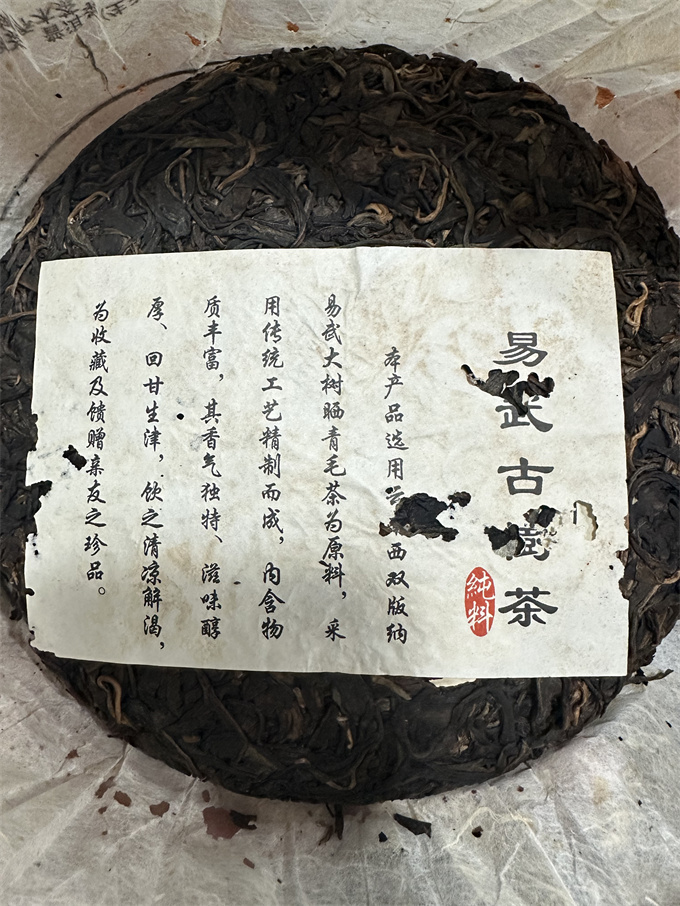 易武古樹茶
純料
本产品选用西双版纳
易武大树晒青毛茶为原料，采
用传统工艺精制而成，内含物
质丰富，其香气独特、滋味醇
厚、回甘生津，饮之清凉解渴，
为收藏及馈赠亲友之珍品。